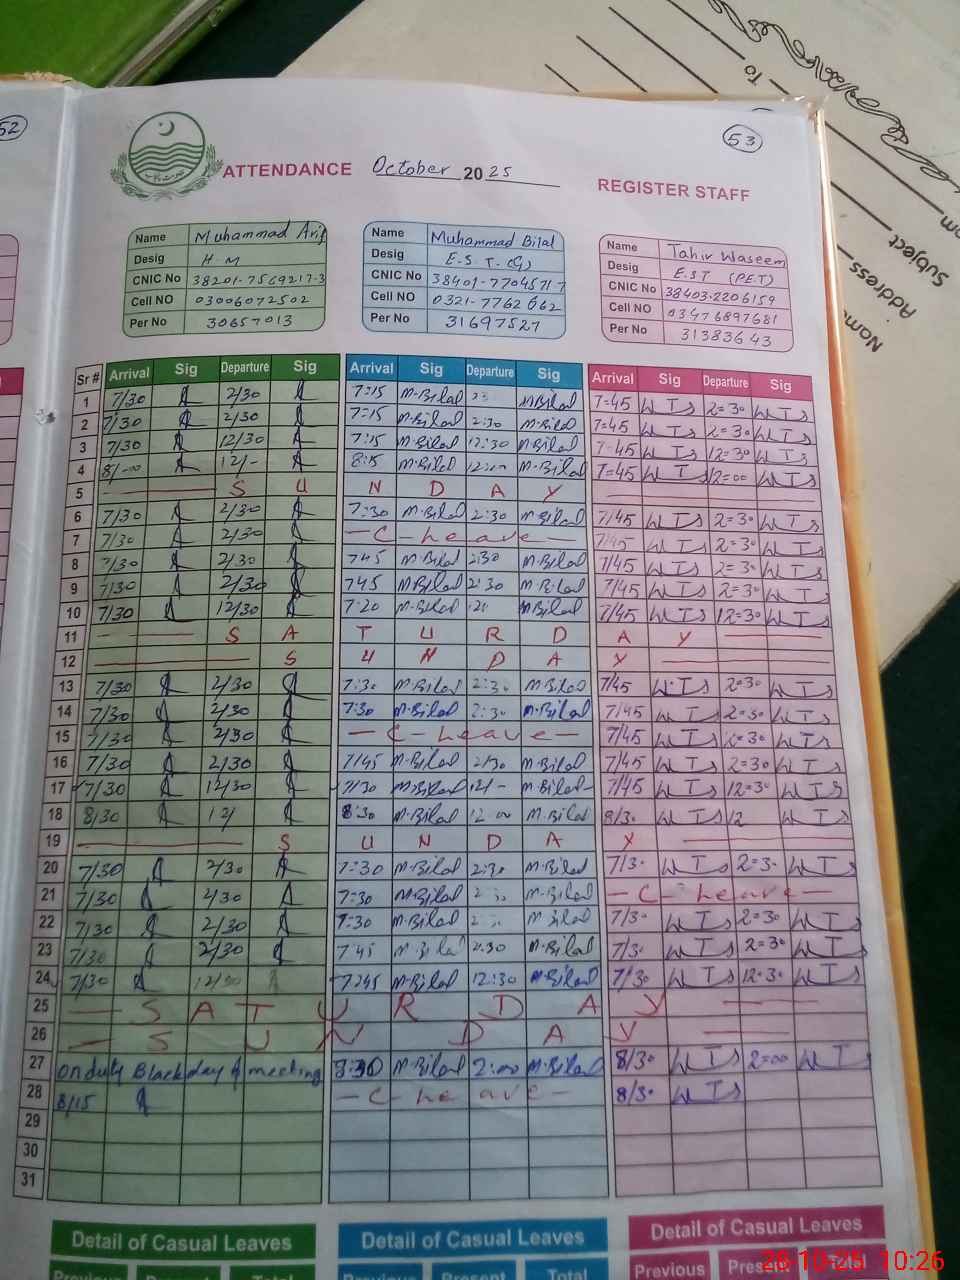 52
53
ATTENDANCE October 2025
REGISTER STAFF
Name Muhammad Arif
Desig H.M
CNIC No 38201-7569217-3
Cell NO 03006072502
Per No 30657013
Name Muhammad Bilal
Desig E.S.T.(G)
CNIC No 38401-7704571-7
Cell NO 0321-7762662
Per No 31697527
Name Tahir Waseem
Desig E.ST (PET)
CNIC No 38403-2206159
Cell NO 03476897681
Per No 31383643
Sr # Arrival Sig Departure Sig Arrival Sig Departure Sig Arrival Sig Departure Sig
1 7/30 2/30 7:15 M.Bilal M.Bilal 7=45 2=30
2 7/30 2/30 7:15 M.Bilal 2:30 M.Bilal 7=45 2=30
3 7/30 12/30 7:15 M.Bilal 12:30 M.Bilal 7=45 12=30
4 8/-00 12/- 8:15 M.Bilal 12:00 M.Bilal 7=45 12=00
5 S U N D A Y
6 7/30 2/30 7:30 M.Bilal 2:30 M.Bilal 7/45 2=30
7 7/30 2/30 - C - Leave - 7/45 2=30
8 7/30 2/30 745 M.Bilal 2:30 M.Bilal 7/45 2=30
9 7/30 2/30 745 M.Bilal 2:30 M.Bilal 7/45 2=30
10 7/30 12/30 7:20 M.Bilal M.Bilal 7/45 12=30
11 S A T U R D A Y
12 S U N D A Y
13 7/30 2/30 7:30 M.Bilal 2:30 M.Bilal 7/45 2=30
14 7/30 2/30 7:30 M.Bilal 2:30 M.Bilal 7/45 2=30
15 7/30 2/30 - C - Leave - 7/45 2=30
16 7/30 2/30 7/45 M.Bilal 2/30 M.Bilal 7/45 2=30
17 7/30 12/30 7/30 M.Bilal 12/- M.Bilal 7/45 12=30
18 8/30 12/ 8:30 M.Bilal 12 00 M.Bilal 8/30 12
19 S U N D A Y
20 7/30 2/30 7:30 M.Bilal 2:30 M.Bilal 7/30 2=30
21 7/30 2/30 7:30 M.Bilal M.Bilal - C - Leave -
22 7/30 2/30 7:30 M.Bilal M.Bilal 7/30 2=30
23 7/30 2/30 745 M.Bilal 2:30 M.Bilal 7/30 2=30
24 7/30 7:45 M.Bilal 12:30 M.Bilal 7/30 12=30
25 - S A T U R D A Y
26 - S U N D A Y
27 on duty Black day & meeting 8:30 M.Bilal 2:00 M.Bilal 8/30 2=00
28 8/15 - C - Leave - 8/30
29
30
31
Detail of Casual Leaves Detail of Casual Leaves Detail of Casual Leaves
Previous Present Total Previous Present Total Previous Present Total
To
Address
Subject
Name
28 10-25 10:26